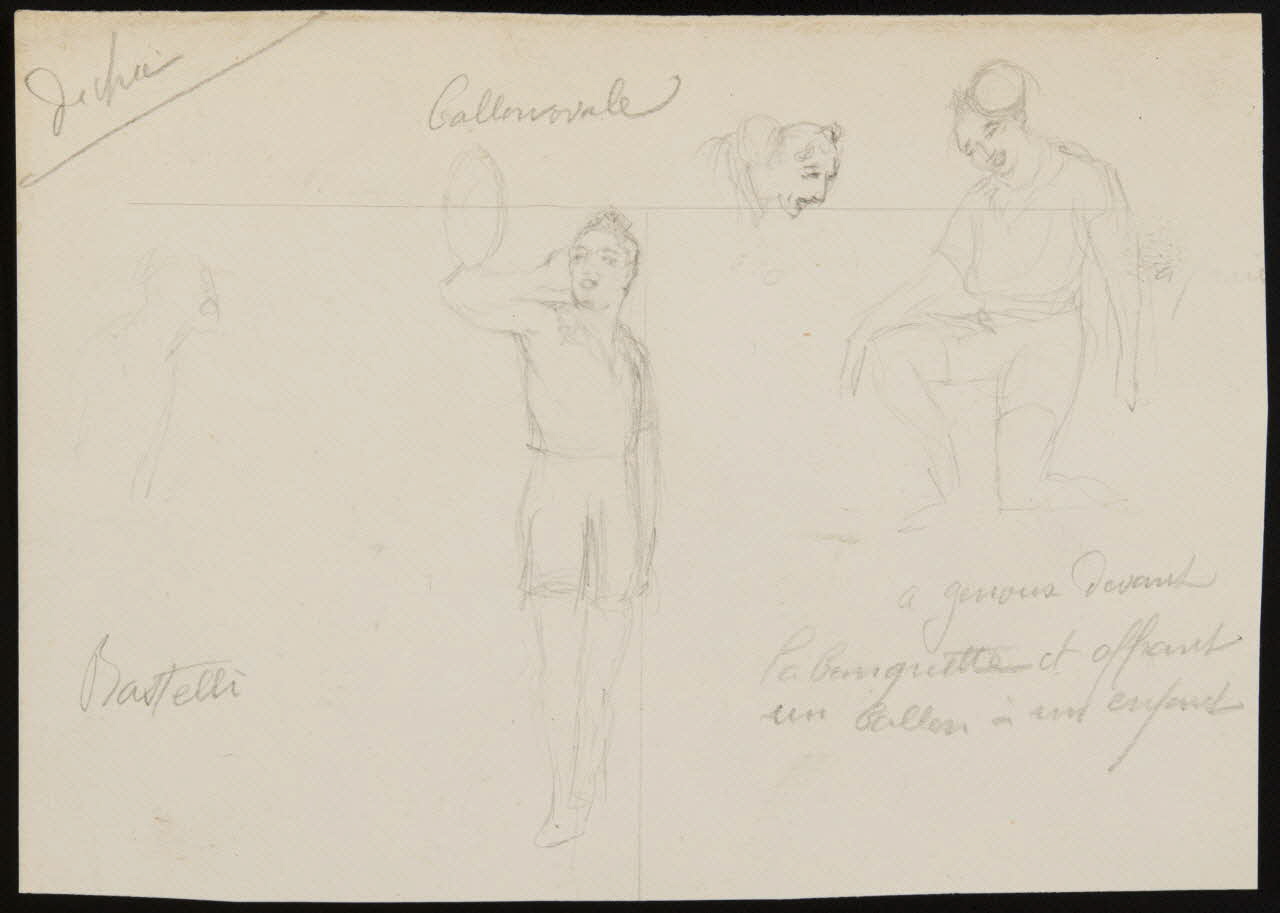 Ballon ovale
Bastelli
a genoux devant
la banquette et offrant
un ballon à un enfant